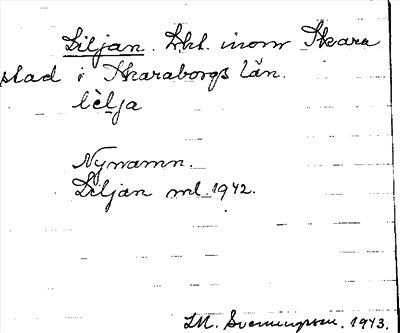 Liljan. Lht. inom Skara
stad i Skaraborgs län.
lilja
Nynamn.
Liljan ml. 1942.
Svenungsson. 1943.